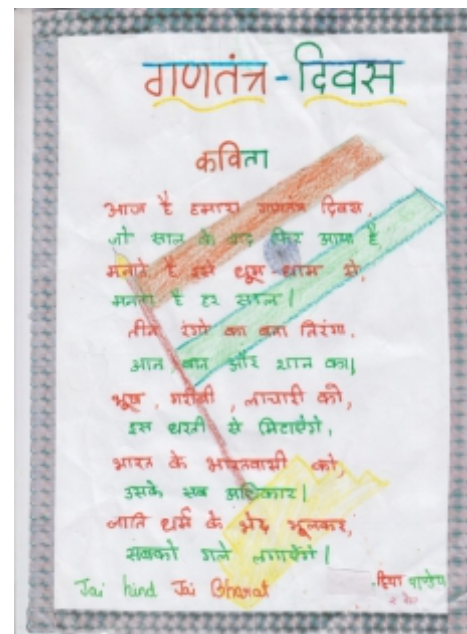 गणतंत्र - दिवस
कविता
आज है हमारा गणतंत्र दिवस,
जो साल के बाद फिर आया है,
मनाते है इसे धूम-धाम से,
मनाता है हर साल।
तीन रंगो का बना तिरंगा,
आन बान और शान का।
भूख, गरीबी, लाचारी को,
इस धरती से मिटाऐंगे,
भारत के भारतवासी को,
उसके सब अधिकार।
जाति धर्म के भेद भूलकर,
सबको गले लगाऐंगे।
Jai hind Jai Bharat